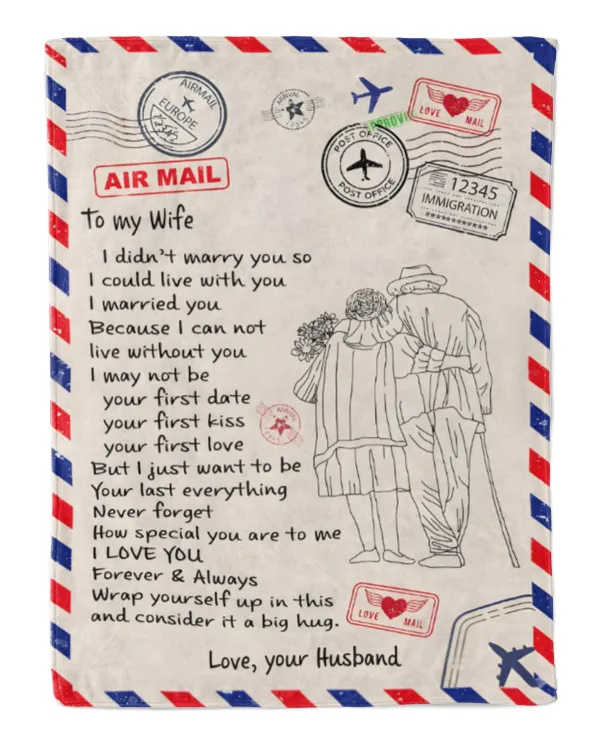 AIRMAIL
EUROPE
12345
ARRIVAL
APPROVE
LOVE MAIL
POST OFFICE
POST OFFICE
12345
IMMIGRATION
AIR MAIL
To my Wife
I didn't marry you so
I could live with you
I married you
Because I can not
live without you
I may not be
your first date
your first kiss
your first love
ARRIVAL
But I just want to be
Your last everything
Never forget
How special you are to me
I LOVE YOU
Forever & Always
Wrap yourself up in this
and consider it a big hug.
LOVE MAIL
Love, your Husband